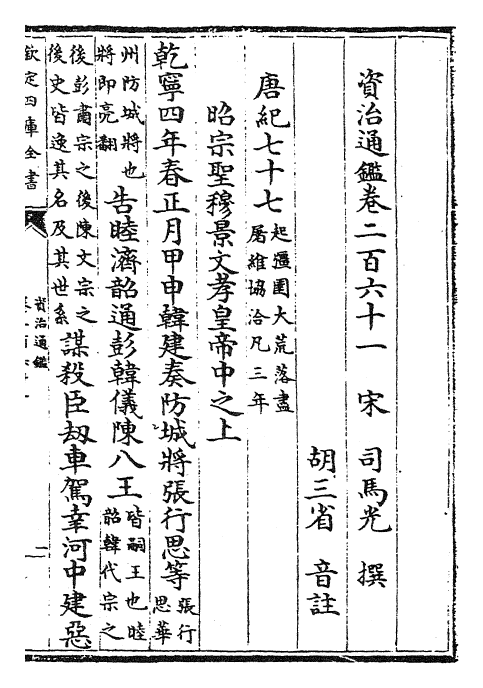 資治通鑑卷二百六十一 宋 司馬光 撰
胡三省 音註
唐紀七十七 起彊圉大荒落盡
屠維協洽凡三年
昭宗聖穆景文孝皇帝中之上
乾寧四年春正月甲申韓建奏防城將張行思等 張行
思華
州防城將也
將即亮翻 告睦濟韶通彭韓儀陳八王 皆嗣王也睦
韶韓代宗之
後彭肅宗之後陳文宗之
後史皆逸其名及其世系 謀殺臣劫車駕幸河中建惡
欽定四庫全書
資治通鑑